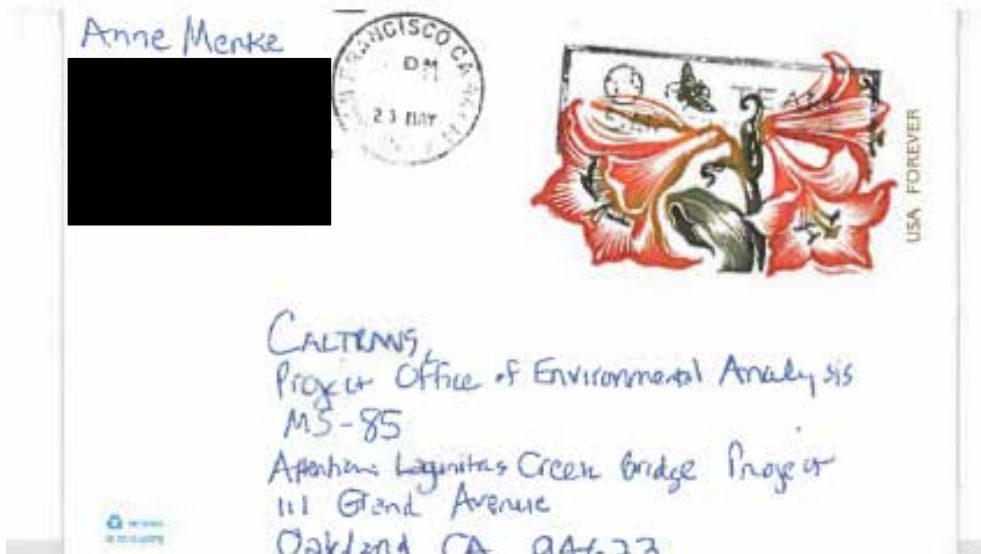 Anne Menke
SAN FRANCISCO CA
PM
23 MAY
USA FOREVER
CALTRANS,
Project Office of Environmental Analysis
MS-85
Attention: Lagunitas Creek Bridge Project
111 Grand Avenue
Oakland CA 94623